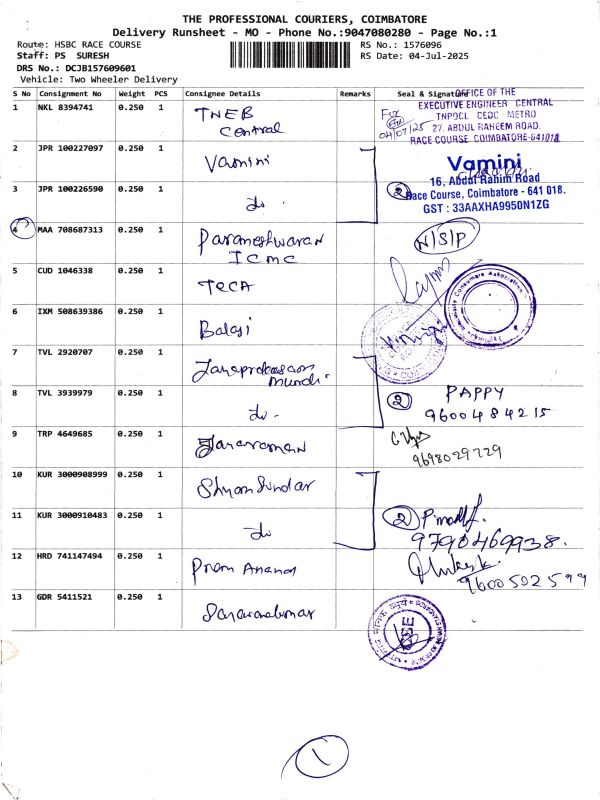 THE PROFESSIONAL COURIERS, COIMBATORE
Delivery Runsheet - MO - Phone No.:9047080280 - Page No.:1
Route: HSBC RACE COURSE
RS No.: 1576096
Staff: PS SURESH
RS Date: 04-Jul-2025
DRS No.: DCJB157609601
Vehicle: Two Wheeler Delivery
S No Consignment No Weight PCS Consignee Details Remarks Seal & Signature
OFFICE OF THE
EXECUTIVE ENGINEER CENTRAL
TNPDCL CEDC METRO
27, ABDUL RAHEEM ROAD.
RACE COURSE, COIMBATORE-641018
For
04/07/25
1 NKL 8394741 0.250 1 TNEB
Central
2 JPR 100227097 0.250 1 Vamini
Vamini
16, Abdul Rahim Road
Race Course, Coimbatore - 641 018.
GST : 33AAXHA9950N1ZG
3 JPR 100226590 0.250 1 do. 2
4 MAA 708687313 0.250 1 Parameshwaran
ICMC
N/S/P
5 CUD 1046338 0.250 1 TECA
6 IXM 508639386 0.250 1 Balaji
7 TVL 2920707 0.250 1 Jayaprakasam
Mundi.
8 TVL 3939979 0.250 1 do. 2 PAPPY
9600484215
9 TRP 4649685 0.250 1 Jayaraman
9698029729
10 KUR 3000908999 0.250 1 Shyam Sundar
11 KUR 3000910483 0.250 1 do 2
9790469938.
12 HRD 741147494 0.250 1 Prem Anand
9600502599
13 GDR 5411521 0.250 1 Saravanakumar
1